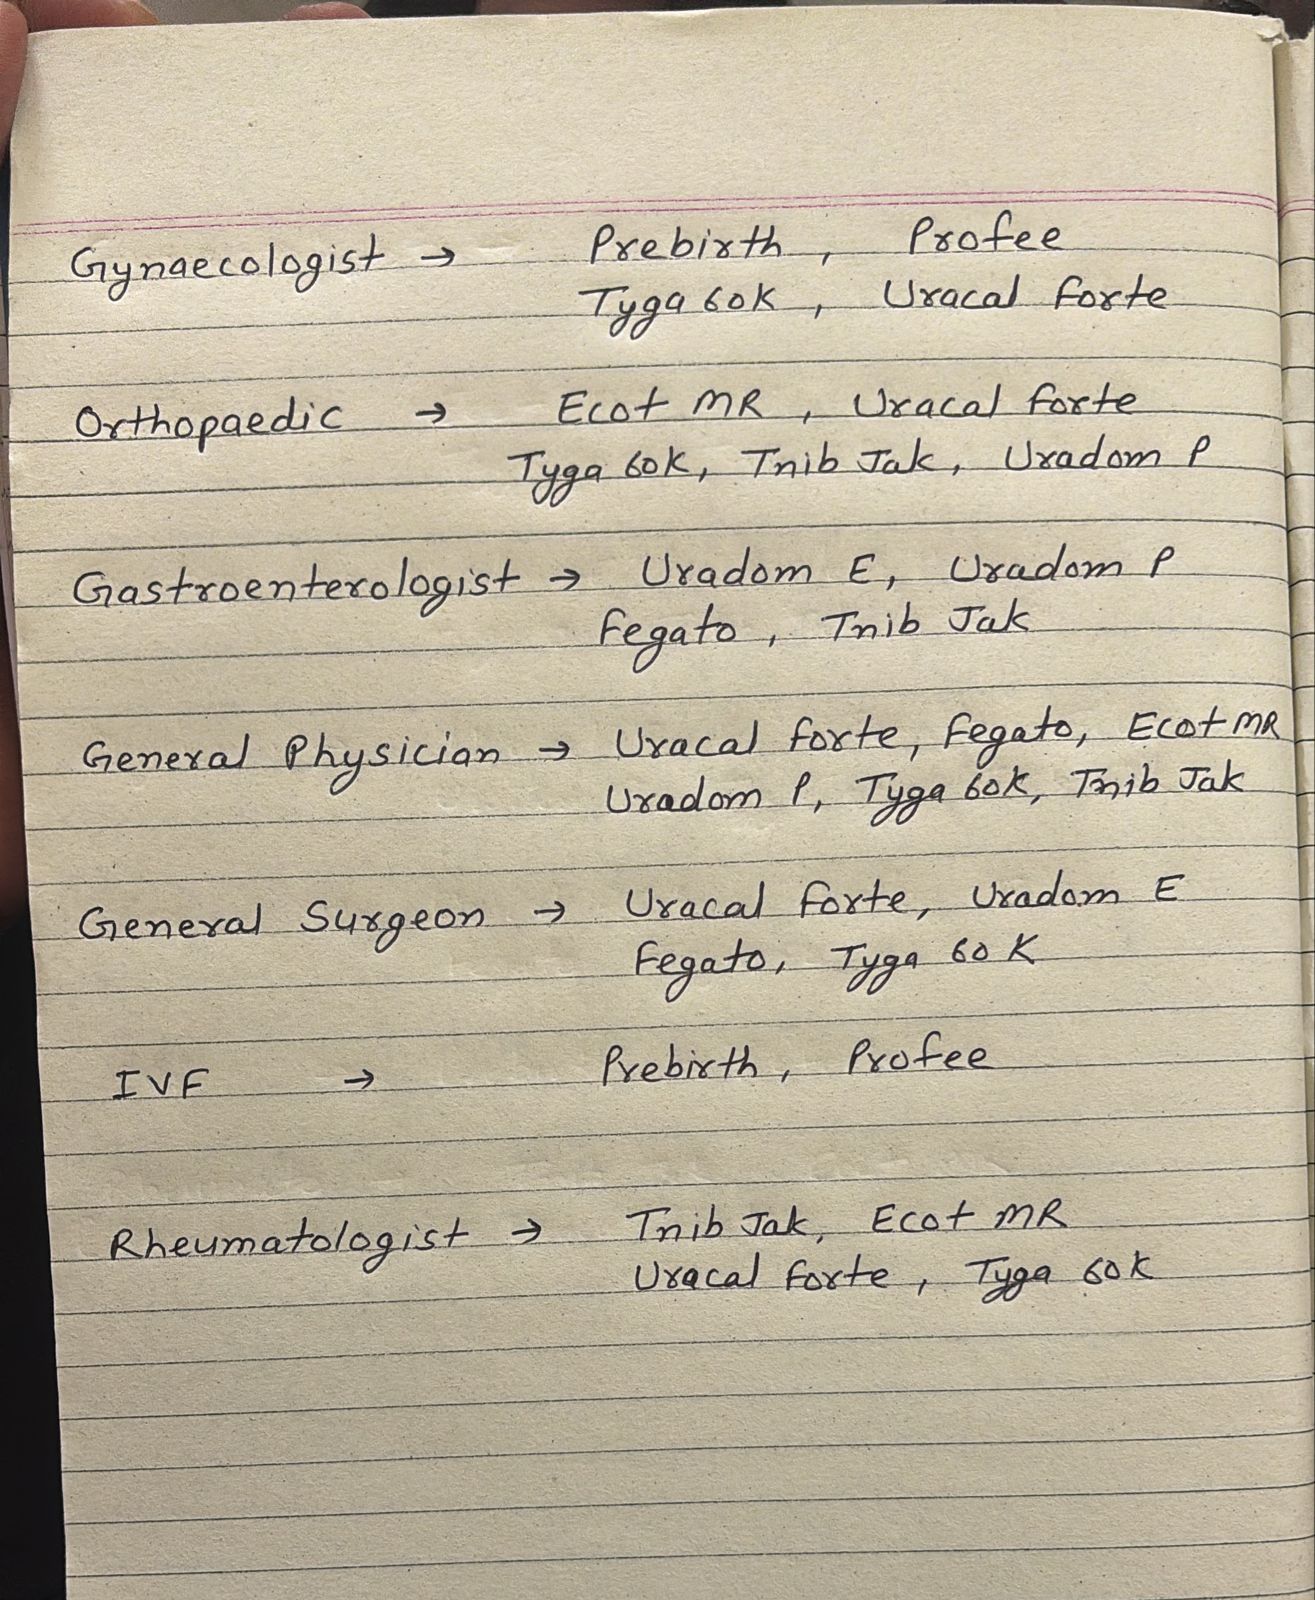 Gynaecologist → Prebirth, Profee
Tyga 60K, Uracal forte
Orthopaedic → Ecot MR, Uracal forte
Tyga 60K, Tnib Jak, Uradom P
Gastroenterologist → Uradom E, Uradom P
Fegato, Tnib Jak
General Physician → Uracal forte, Fegato, Ecot MR
Uradom P, Tyga 60K, Tnib Jak
General Surgeon → Uracal forte, Uradom E
Fegato, Tyga 60K
IVF → Prebirth, Profee
Rheumatologist → Tnib Jak, Ecot MR
Uracal forte, Tyga 60K